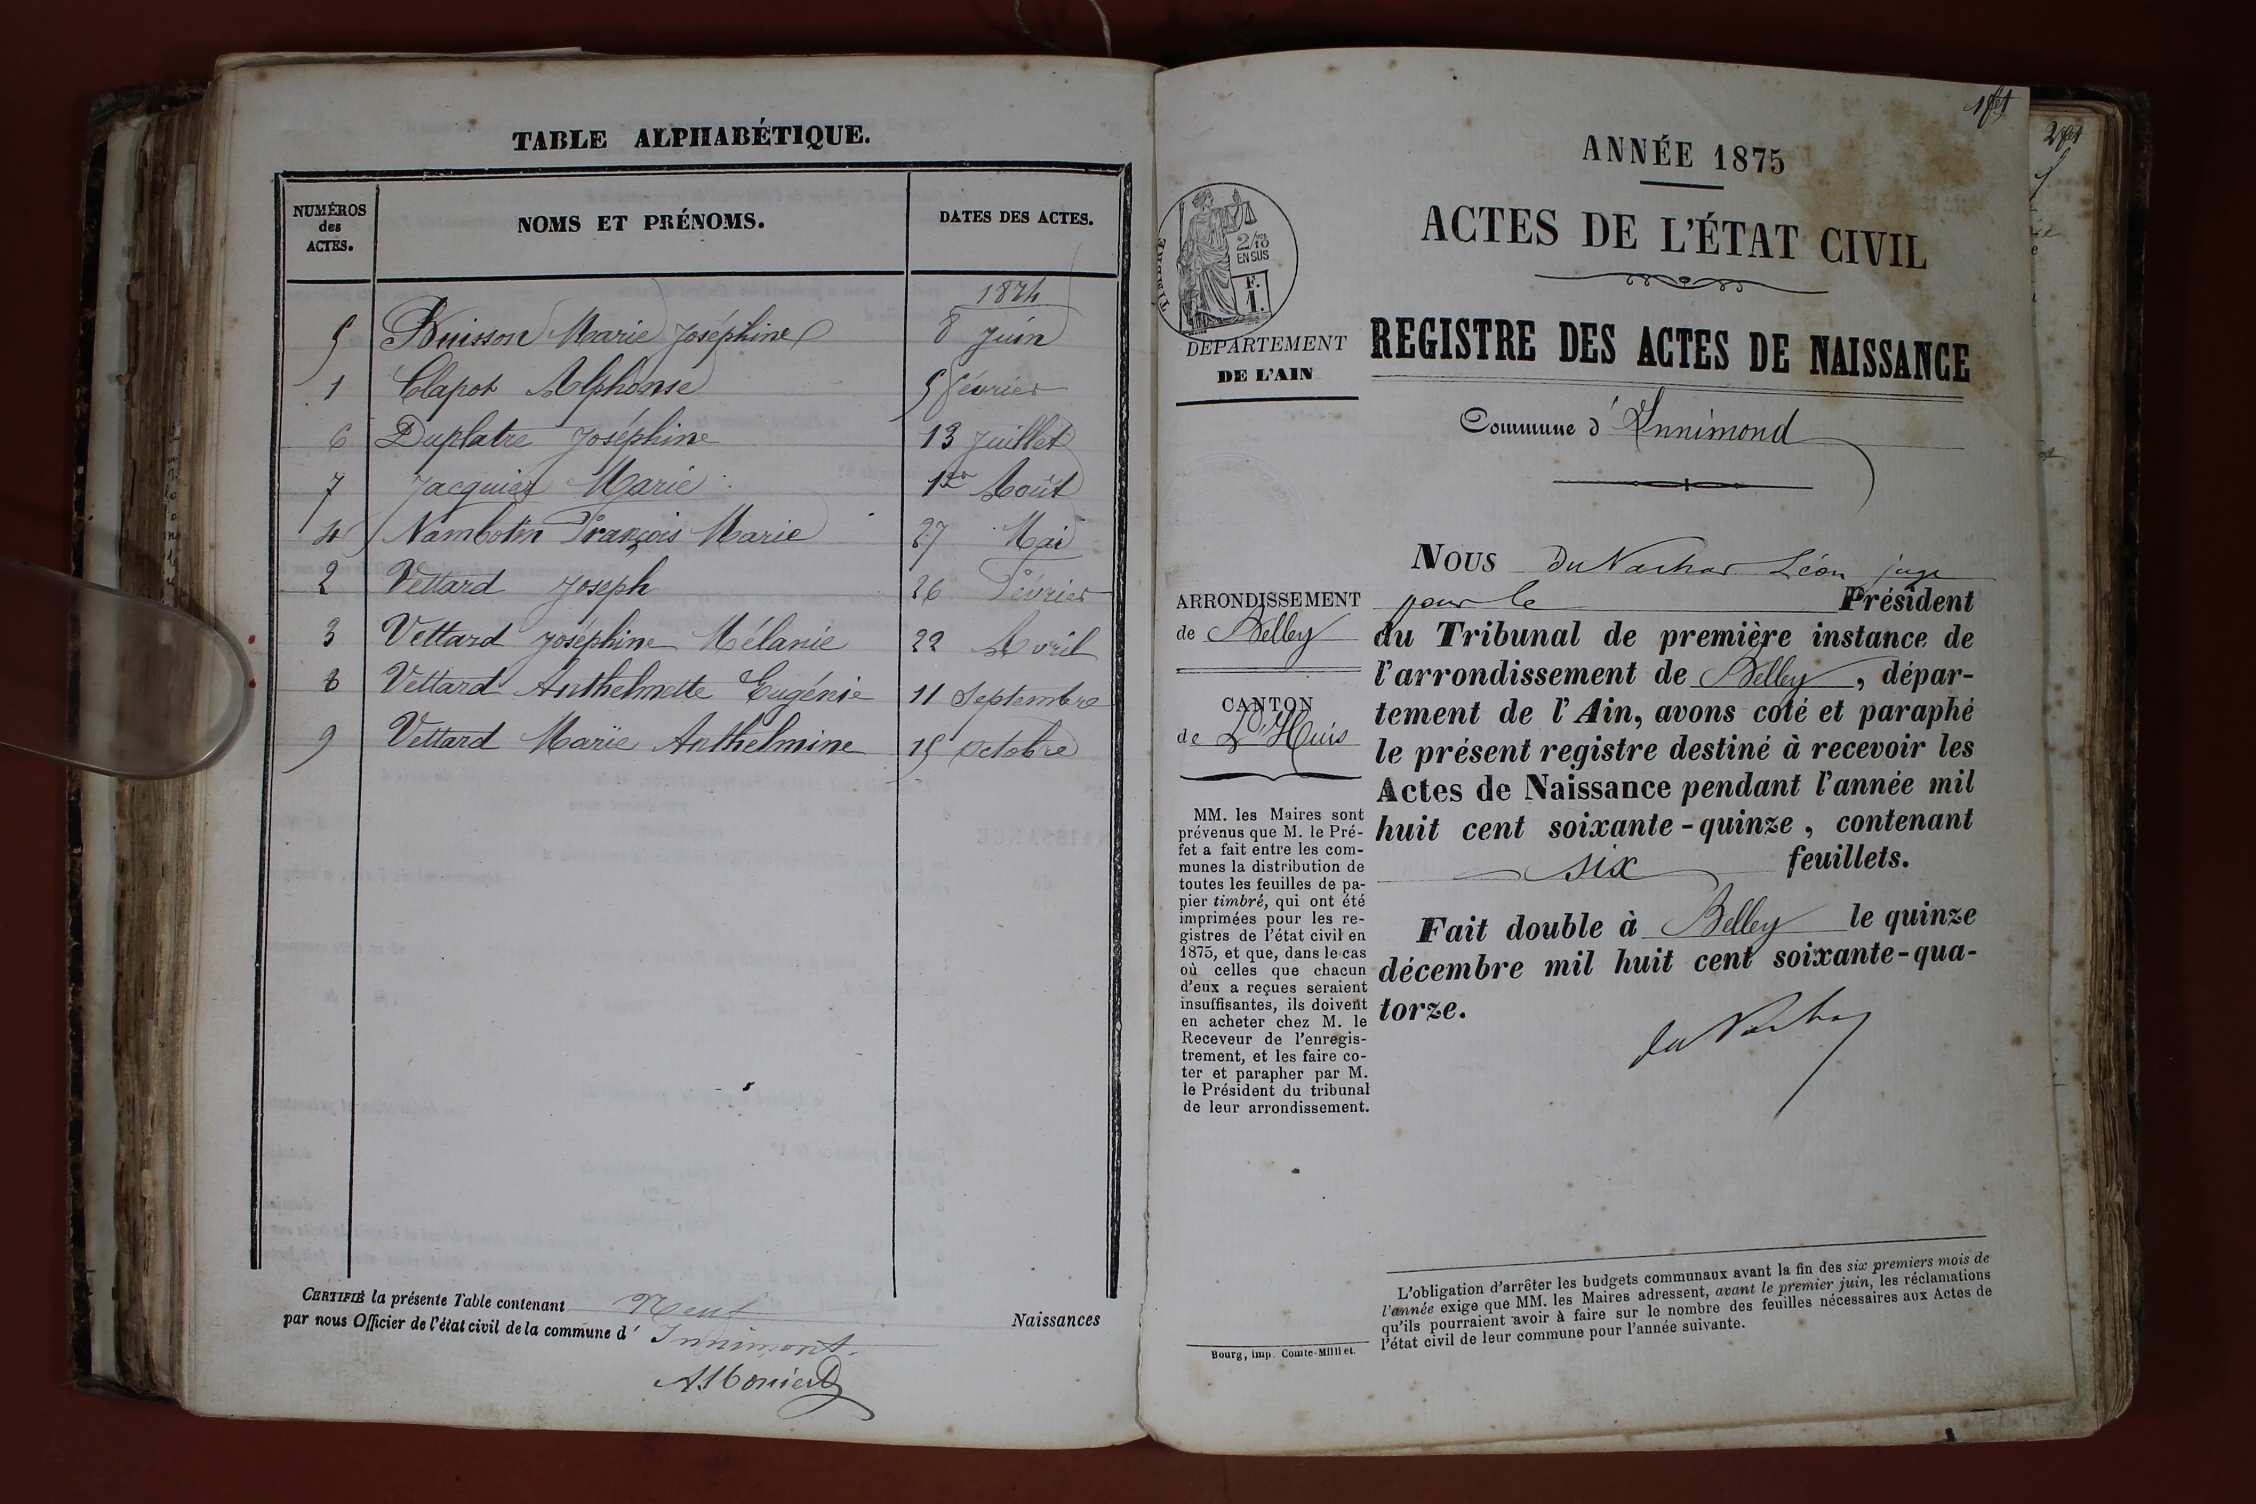 TABLE ALPHABÉTIQUE.
NUMÉROS des ACTES.
NOMS ET PRÉNOMS.
DATES DES ACTES.
1874
5 Buisson Marie Joséphine 8 Juin
1 Clapot Alphonse 5 février
6 Duplatre Joséphine 13 Juillet
7 Jacquier Marie 1er Août
4 Nambotin François Marie 27 Mai
2 Vettard Joseph 26 Février
3 Vettard Joséphine Mélanie 22 Avril
8 Vettard Anthelmette Eugénie 11 Septembre
9 Vettard Marie Anthelmine 15 Octobre
CERTIFIÉ la présente Table contenant Neuf Naissances
par nous Officier de l'état civil de la commune d' Innimont.
1 fet
2 fet
ANNÉE 1875
ACTES DE L'ÉTAT CIVIL
TIMBRE
2/10
EN SUS
F.
1.
DÉPARTEMENT
DE L'AIN
REGISTRE DES ACTES DE NAISSANCE
Commune d'Innimond
ARRONDISSEMENT
de Belley
CANTON
de L'Huis
MM. les Maires sont
prévenus que M. le Pré-
fet a fait entre les com-
munes la distribution de
toutes les feuilles de pa-
pier timbré, qui ont été
imprimées pour les re-
gistres de l'état civil en
1875, et que, dans le cas
où celles que chacun
d'eux a reçues seraient
insuffisantes, ils doivent
en acheter chez M. le
Receveur de l'enregis-
trement, et les faire co-
ter et parapher par M.
le Président du tribunal
de leur arrondissement.
NOUS Léon juge
pour le Président
du Tribunal de première instance de
l'arrondissement de Belley, dépar-
tement de l'Ain, avons coté et paraphé
le présent registre destiné à recevoir les
Actes de Naissance pendant l'année mil
huit cent soixante-quinze, contenant
six feuillets.
Fait double à Belley le quinze
décembre mil huit cent soixante-qua-
torze.
L'obligation d'arrêter les budgets communaux avant la fin des six premiers mois de
l'année exige que MM. les Maires adressent, avant le premier juin, les réclamations
qu'ils pourraient avoir à faire sur le nombre des feuilles nécessaires aux Actes de
l'état civil de leur commune pour l'année suivante.
Bourg, imp. Comte-Milliet.